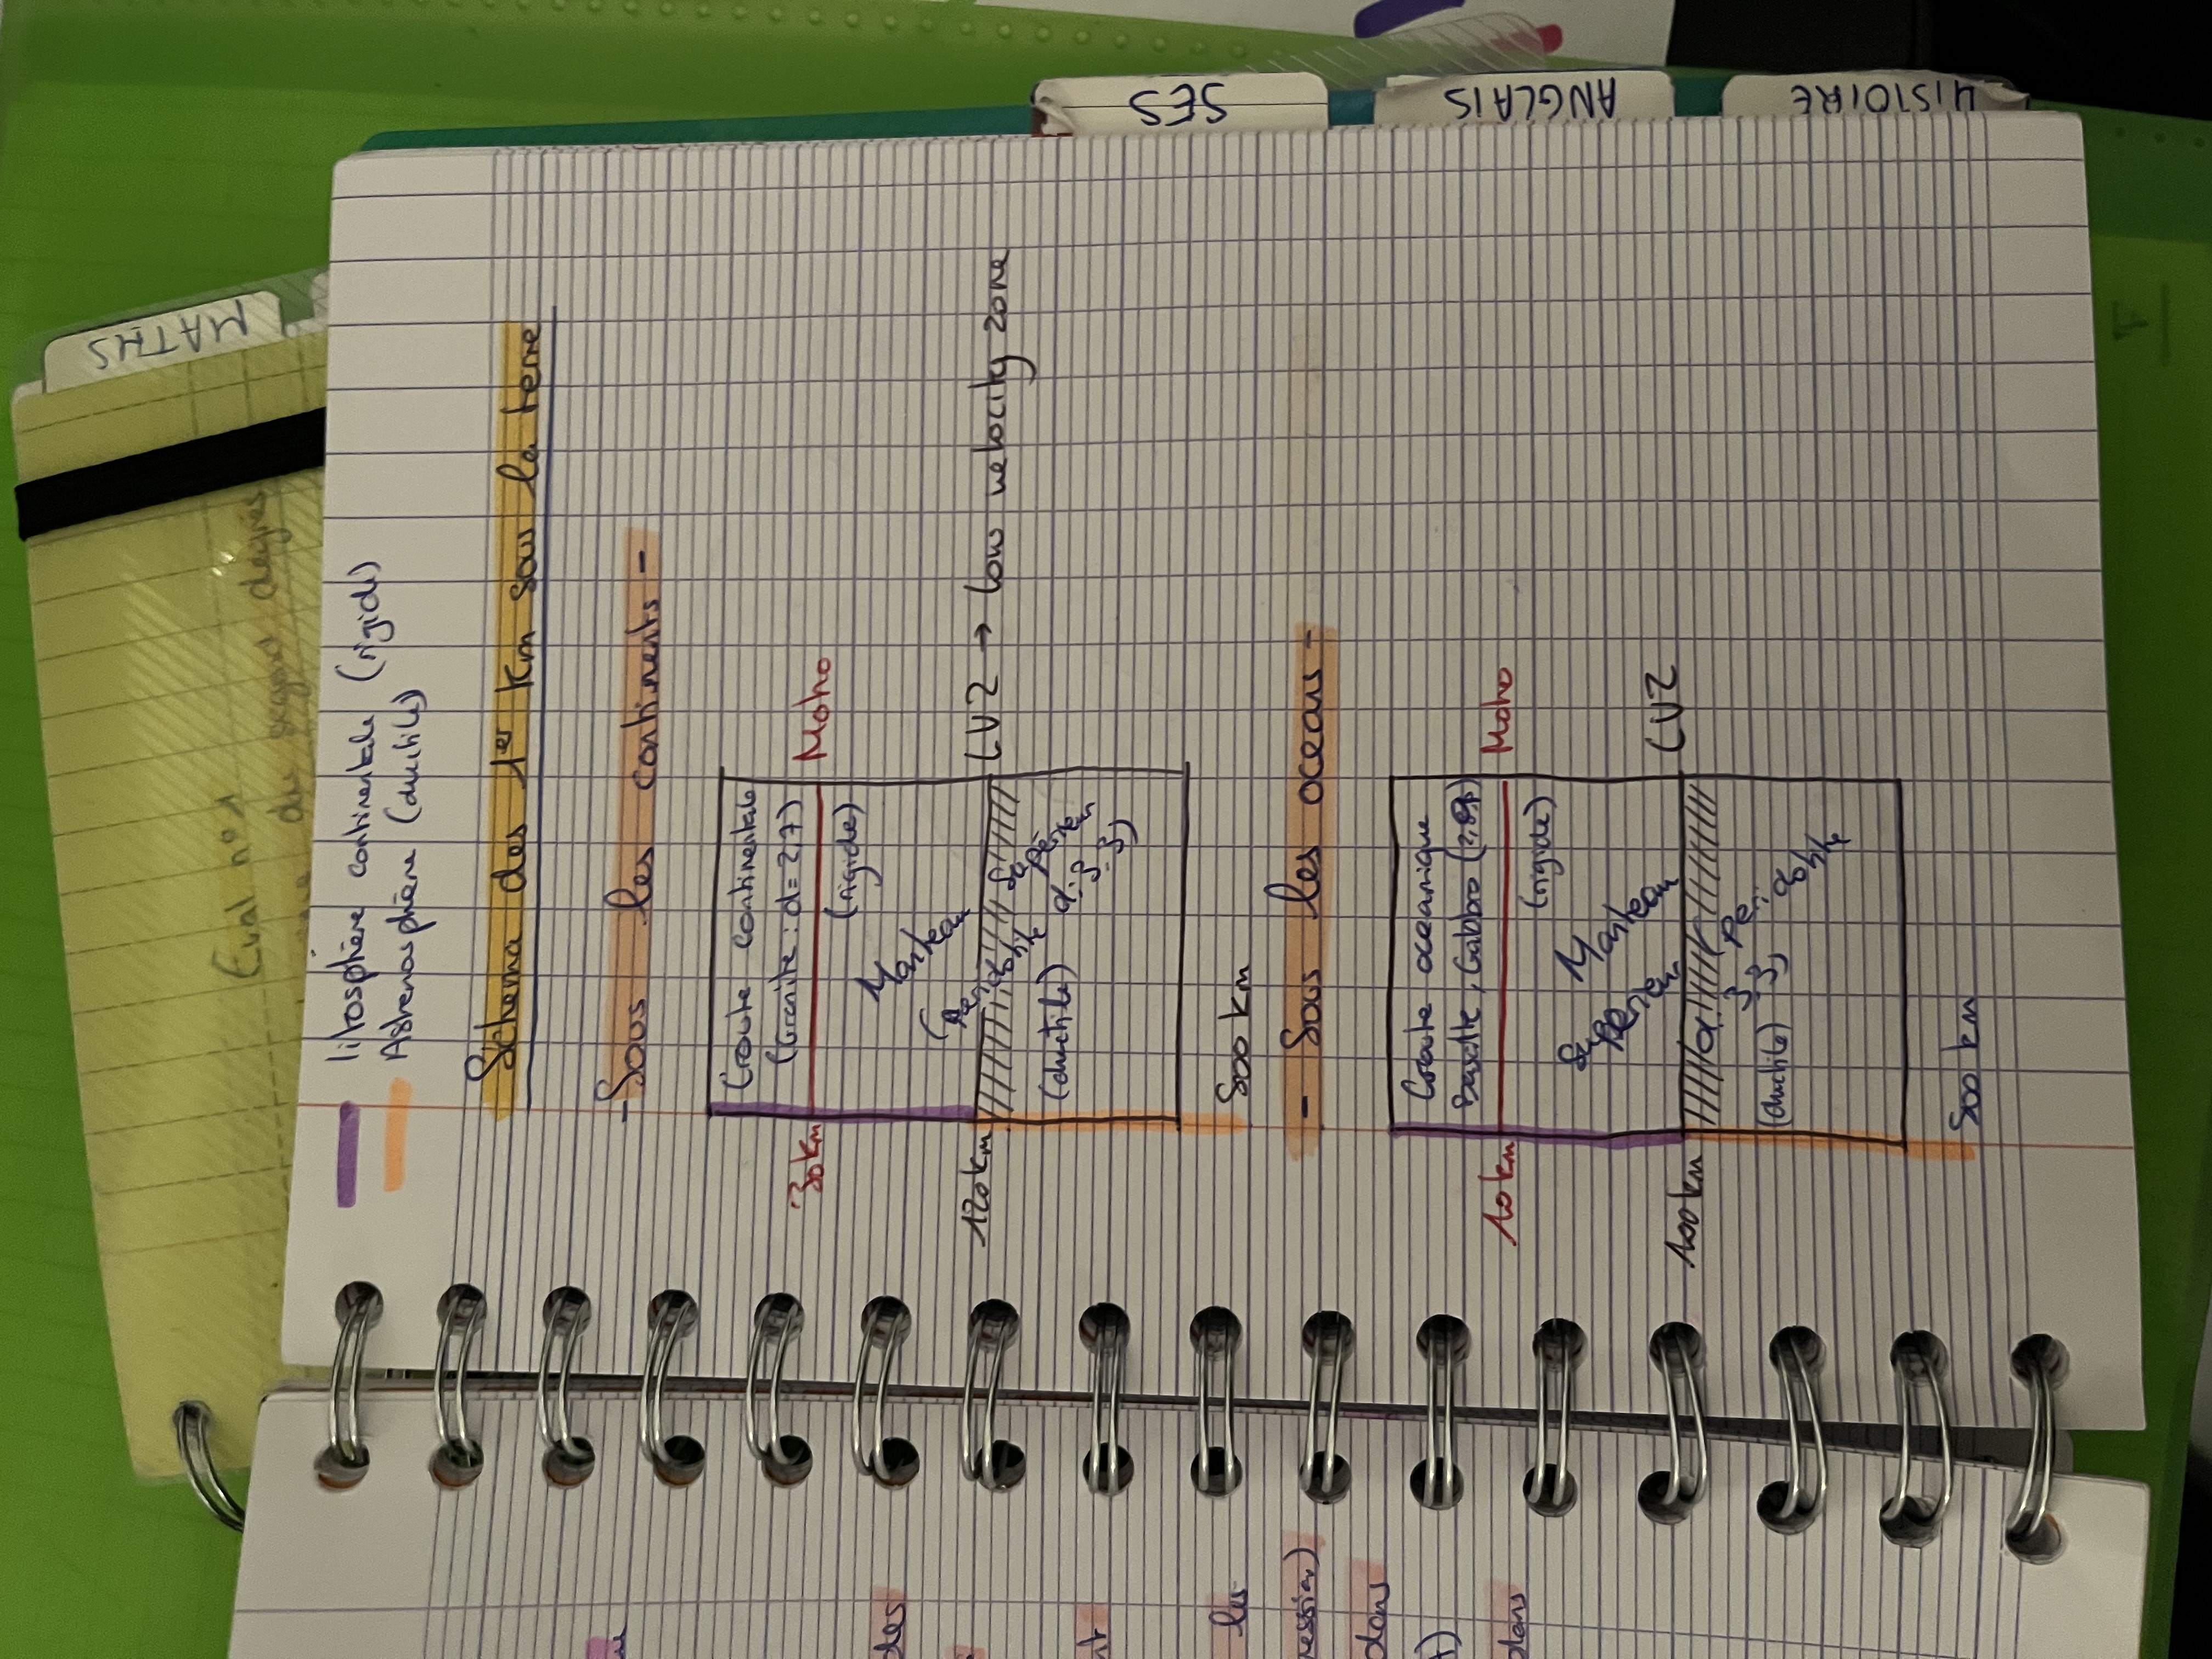 SES
ANGLAIS
HISTOIRE
MATHS
Eval n°1
du second degrés
litosphère continentale (rigide)
Asthenosphère (ductile)
Schema des 1er km sous la terre
- Sous les continents -
Croute continentale
(Granite : d = 2,7)
30 km
Moho
(rigide)
Manteau
120 km
LVZ → low velocity zone
(ductile)
500 km
- Sous les oceans -
Croute oceanique
Basalte, Gabbro
10 km
Moho
(rigide)
Manteau
100 km
LVZ
(ductile)
500 km
des
les
dans
dans